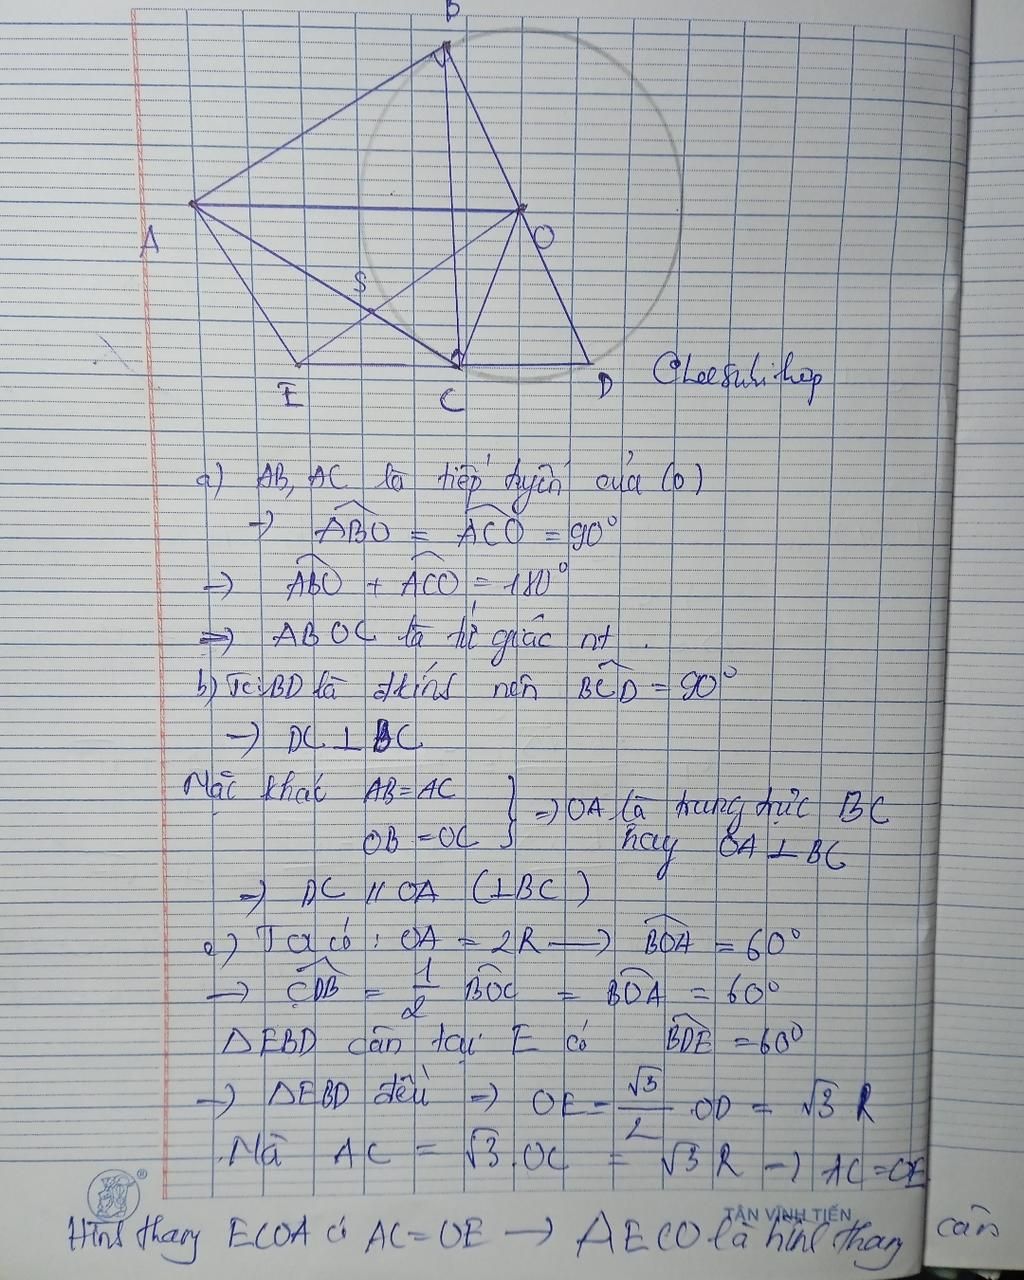 B
A
O
S
E
C
D
a) AB, AC là tiếp tuyến của (O)
→ ABO = ACO = 90°
→ ABO + ACO = 180°
⇒ ABOC là tứ giác nt.
b) Ta có BD là đkính nên BCD = 90°
→ DC ⊥ BC
Mặc khác AB = AC
OB = OC
} ⇒ OA là trung trực BC
hay OA ⊥ BC
⇒ DC // OA (⊥BC)
c) Ta có: OA = 2R → BOA = 60°
→ CDB = 1/2 BOC = BOA = 60°
ΔEBD cân tại E có BDE = 60°
→ ΔEBD đều ⇒ OE = √3/2 OD = √3 R
Mà AC = √3.OC = √3 R → AC = OE
TÂN VĨNH TIẾN
Hình thang ECOA có AC = OE → AECO là hình thang cân